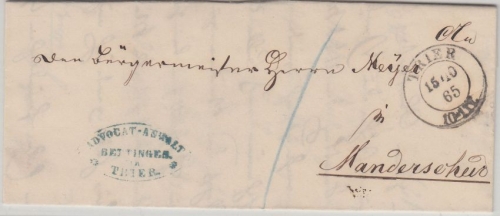 An
den Bürgermeister Herrn Meyer
in
Manderscheid
TRIER
15 10
65
ADVOCAT-ANWALT
IN
TRIER.